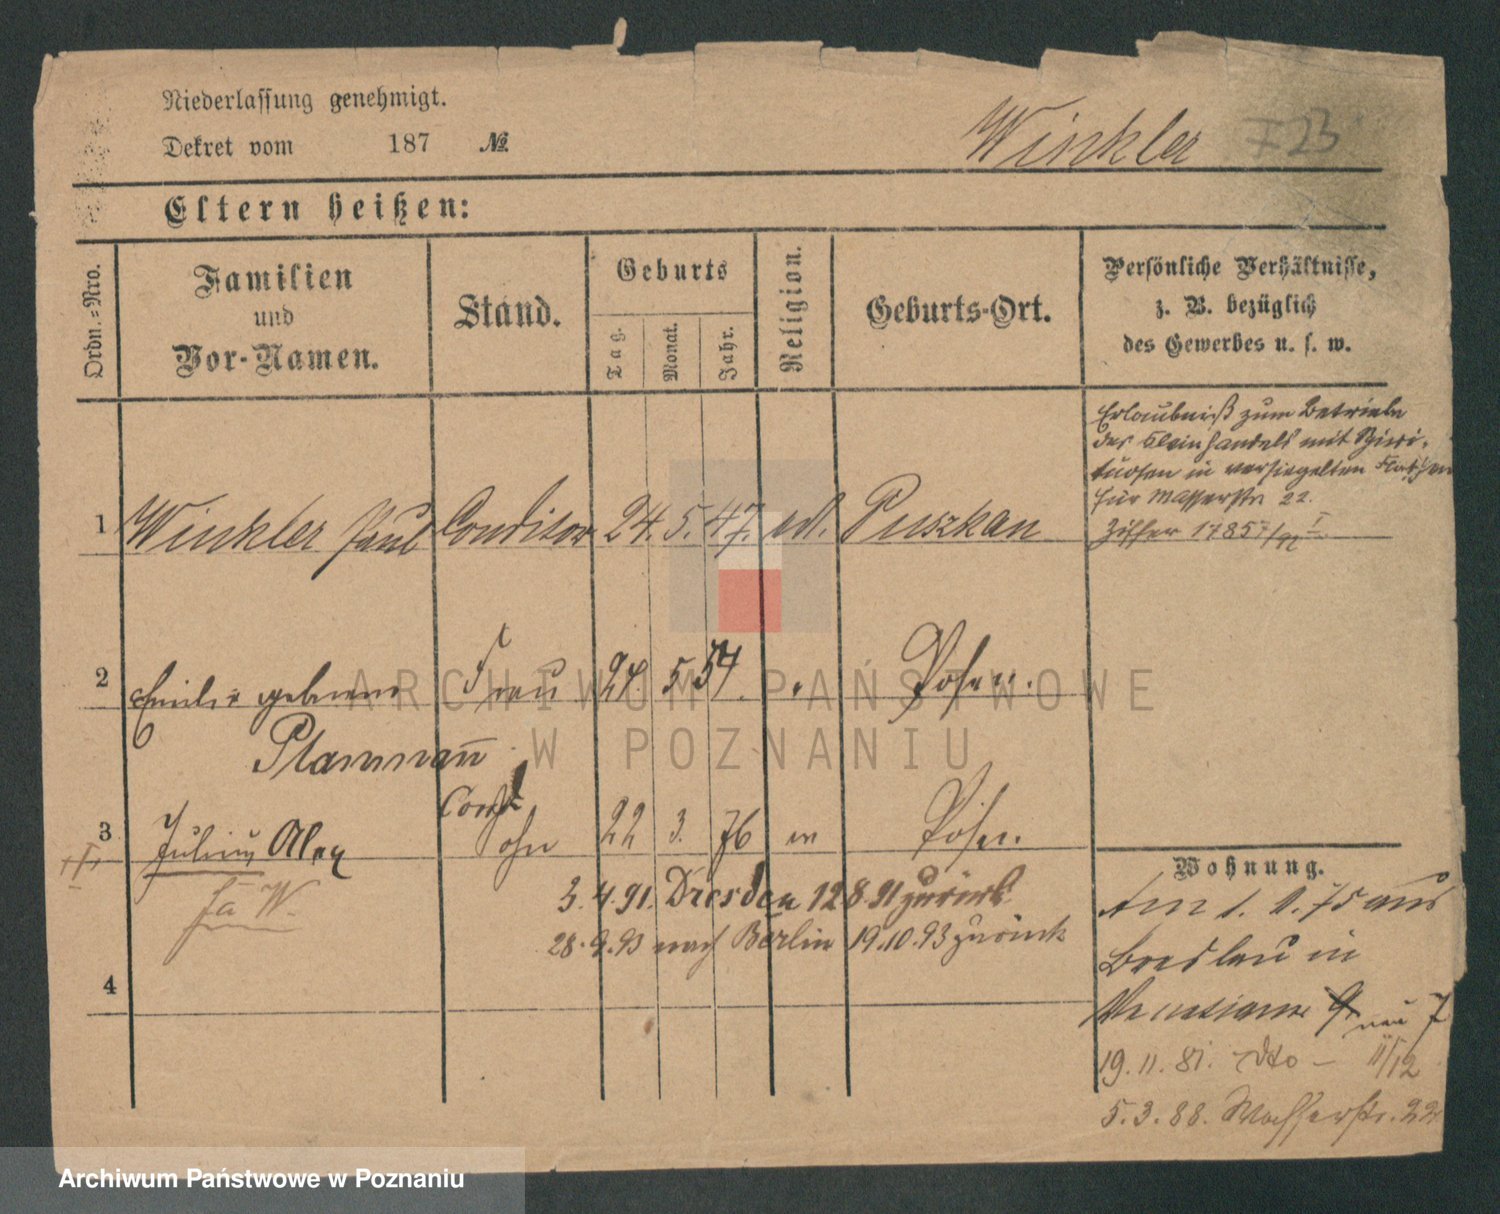 Niederlassung genehmigt.
Dekret vom 187 №
Winkler F23
Eltern heißen:
Ordn.-Nro.
Familien
und
Vor-Namen.
Stand.
Geburts
Tag.
Monat.
Jahr.
Religion.
Geburts-Ort.
Persönliche Verhältnisse,
z. B. bezüglich
des Gewerbes u. s. w.
Erlaubniß zum Betriebe
des Kleinhandels mit Spiri-
tuosen in versiegelten Flaschen
für Wasserstr 22.
Ziffer 1785
1 Winkler Paul Conditor 24. 5. 47. Puszkau
2 Emilie geborene Frau 24. 5 54. Posen.
Plassmann
Cond
3 Julius Alex Sohn 22 3. 76 m Posen.
3.4.91. Dresden 12 8.91 zurück
28.9.93 nach Berlin 19.10.93 zurück
4
Wohnung.
Am 1. 1. 75 aus
Breslau in
9 neu 7
19. 11. 81. dto - 11/12
5.3.88. Wasserstr. 22
ARCHIWUM PAŃSTWOWE
W POZNANIU
Archiwum Państwowe w Poznaniu